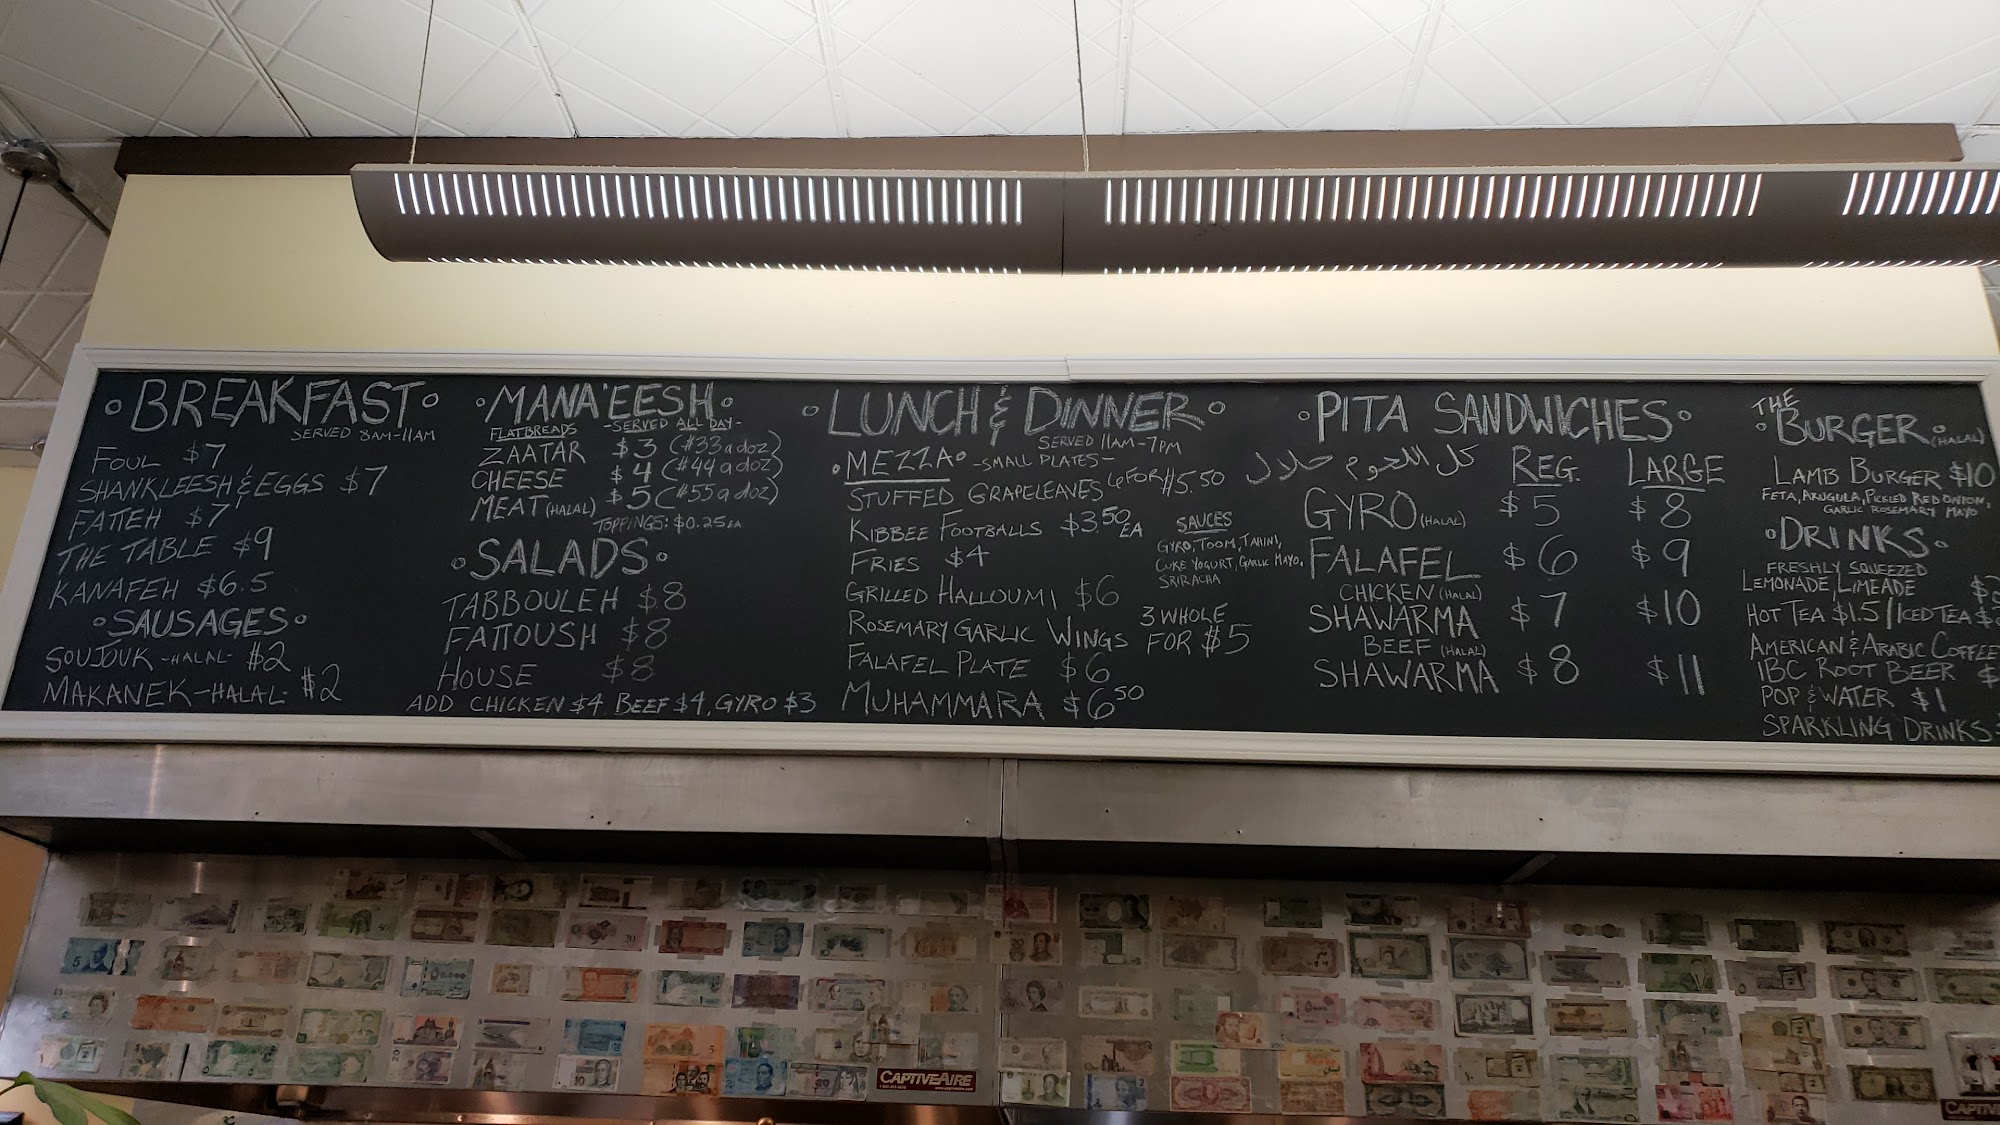 BREAKFAST
SERVED 8AM-11AM
FOUL $7
SHANKLEESH & EGGS $7
FATTEH $7
THE TABLE $9
KANAFEH $6.5
SAUSAGES
SOUJOUK -HALAL- $2
MAKANEK -HALAL- $2
MANA'EESH
FLATBREADS -SERVED ALL DAY-
ZAATAR $3 ($33 a doz)
CHEESE $4 ($44 a doz)
MEAT (HALAL) $5 ($55 a doz)
TOPPINGS: $0.25 EA
SALADS
TABBOULEH $8
FATTOUSH $8
HOUSE $8
ADD CHICKEN $4, BEEF $4, GYRO $3
LUNCH & DINNER
SERVED 11AM-7PM
MEZZA -SMALL PLATES-
STUFFED GRAPELEAVES 6 FOR $5.50
KIBBEE FOOTBALLS $3.50 EA
FRIES $4
GRILLED HALLOUMI $6
ROSEMARY GARLIC WINGS 3 WHOLE FOR $5
FALAFEL PLATE $6
MUHAMMARA $6.50
SAUCES
GYRO, TOOM, TAHINI,
CUKE YOGURT, GARLIC MAYO,
SRIRACHA
PITA SANDWICHES
كل اللحوم حلال REG. LARGE
GYRO (HALAL) $5 $8
FALAFEL $6 $9
CHICKEN (HALAL)
SHAWARMA $7 $10
BEEF (HALAL)
SHAWARMA $8 $11
THE
BURGER (HALAL)
LAMB BURGER $10
FETA, ARUGULA, PICKLED RED ONION,
GARLIC ROSEMARY MAYO
DRINKS
FRESHLY SQUEEZED
LEMONADE, LIMEADE
HOT TEA $1.5 / ICED TEA
AMERICAN & ARABIC COFFEE
IBC ROOT BEER
POP & WATER $1
SPARKLING DRINKS
CAPTIVEAIRE